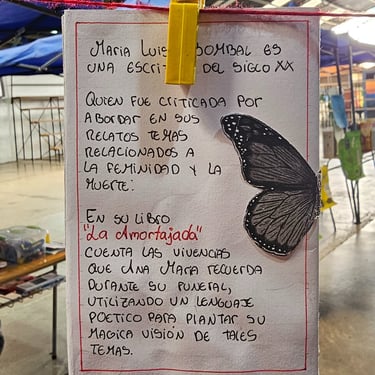 MARIA LUIS BOMBAL ES
UNA ESCRIT DEL SIGLO XX
QUIEN FUE CRITICADA POR
ABORDAR EN SUS
RELATOS TEMAS
RELACIONADOS A
LA FEMINIDAD Y LA
MUERTE.
EN SU LIBRO
"La Amortajada"
CUENTA LAS VIVENCIAS
QUE ANA MARIA RECUERDA
DURANTE SU FUNERAL,
UTILIZANDO UN LENGUAJE
POETICO PARA PLANTAR SU
MAGICA VISIÓN DE TALES
TEMAS.